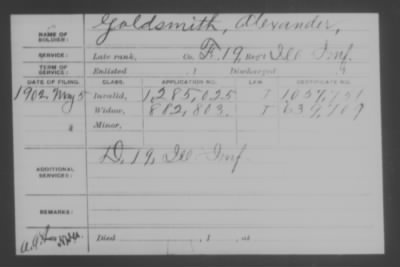 NAME OF SOLDIER: Goldsmith, Alexander,
SERVICE: Late rank, Co. F. 19, Reg't Ill Inf.
TERM OF SERVICE: Enlisted , 1 Discharged , 1
DATE OF FILING. CLASS. APPLICATION NO. LAW. CERTIFICATE NO.
1902, May 5 Invalid, 1,285,025
Widow, 882,803.
Minor,
ADDITIONAL SERVICES: D. 19, Ill Inf.
REMARKS:
Died , 1 , at